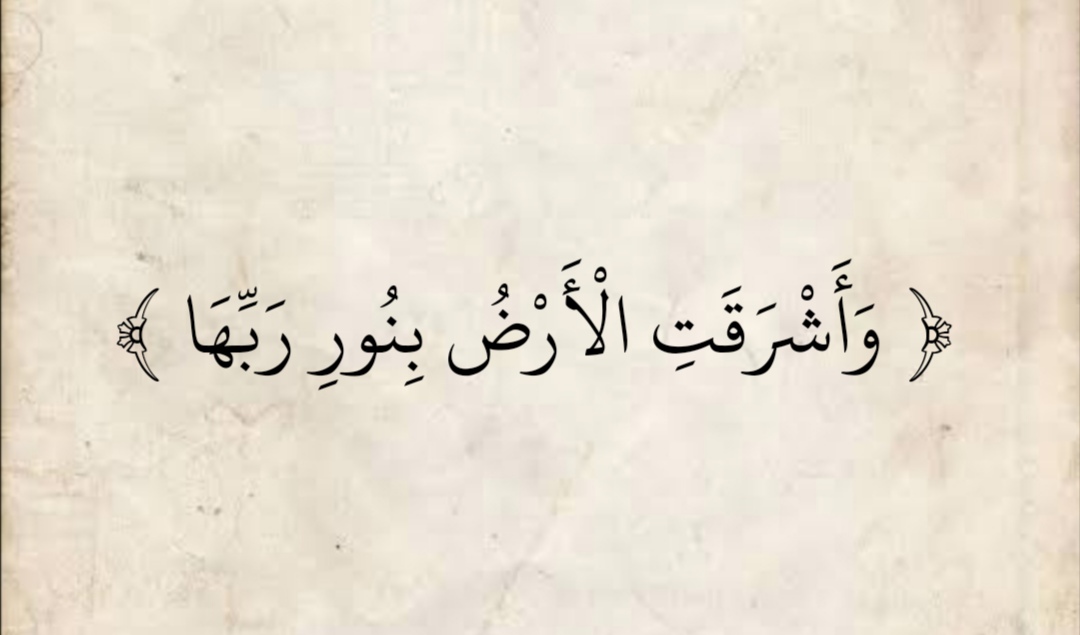 ﴿ وَأَشْرَقَتِ الْأَرْضُ بِنُورِ رَبِّهَا ﴾